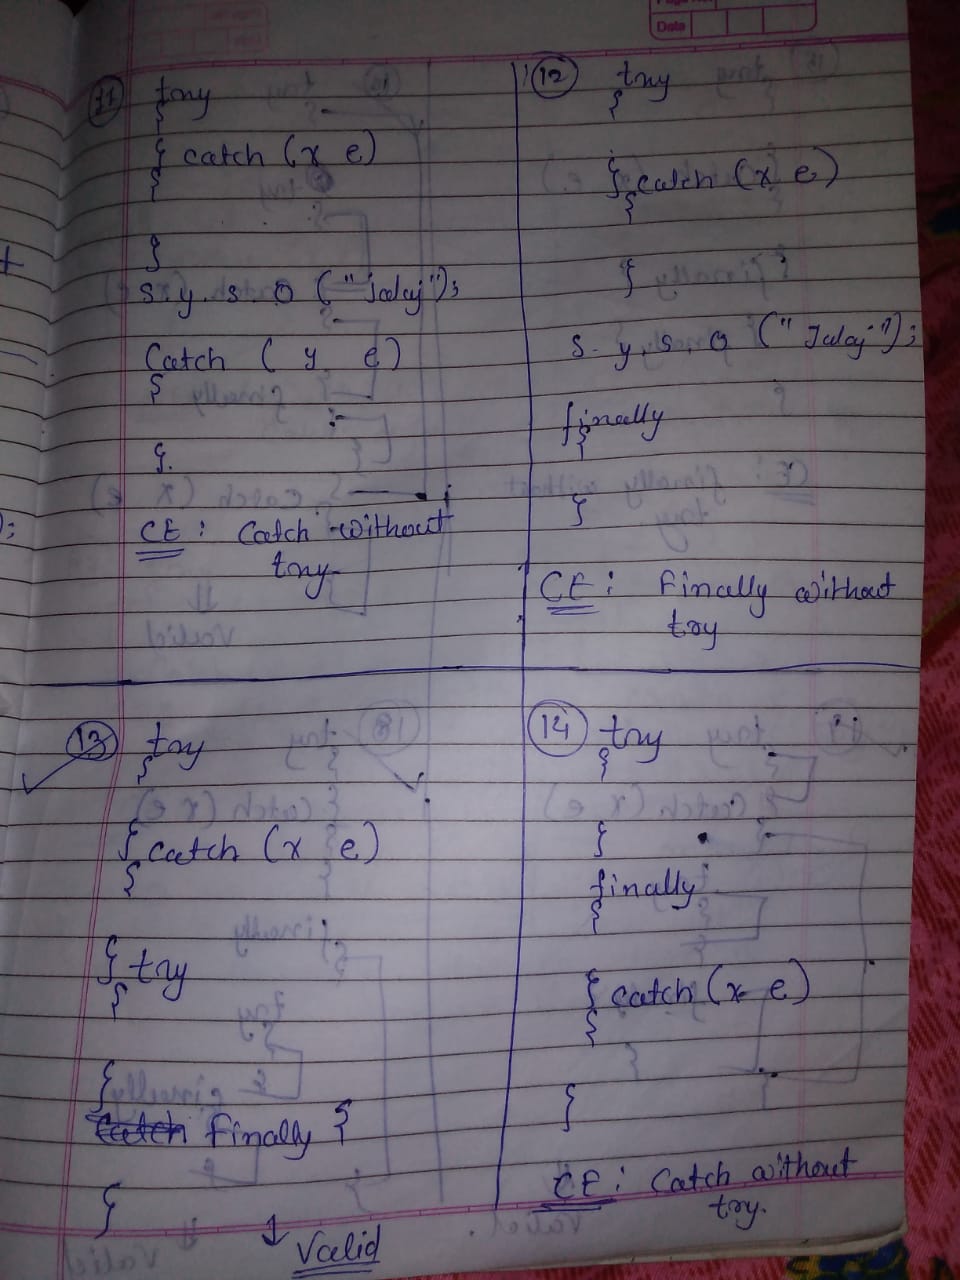 Date
11 try
{
} catch (x e)
{
}
S.y.s.o ("Jalaj");
Catch ( y e)
{
}.
CE : Catch without
try
12 try
{
} catch (x e)
{
}
S.y.s.o ("Jalaj");
finally
{
}
CE : Finally without
try
13 try
{
} catch (x e)
{
} try
{
}
finally {
}
↓ Valid
14 try
{
}
finally
{
} catch (x e)
{
}
CE : Catch without
try.